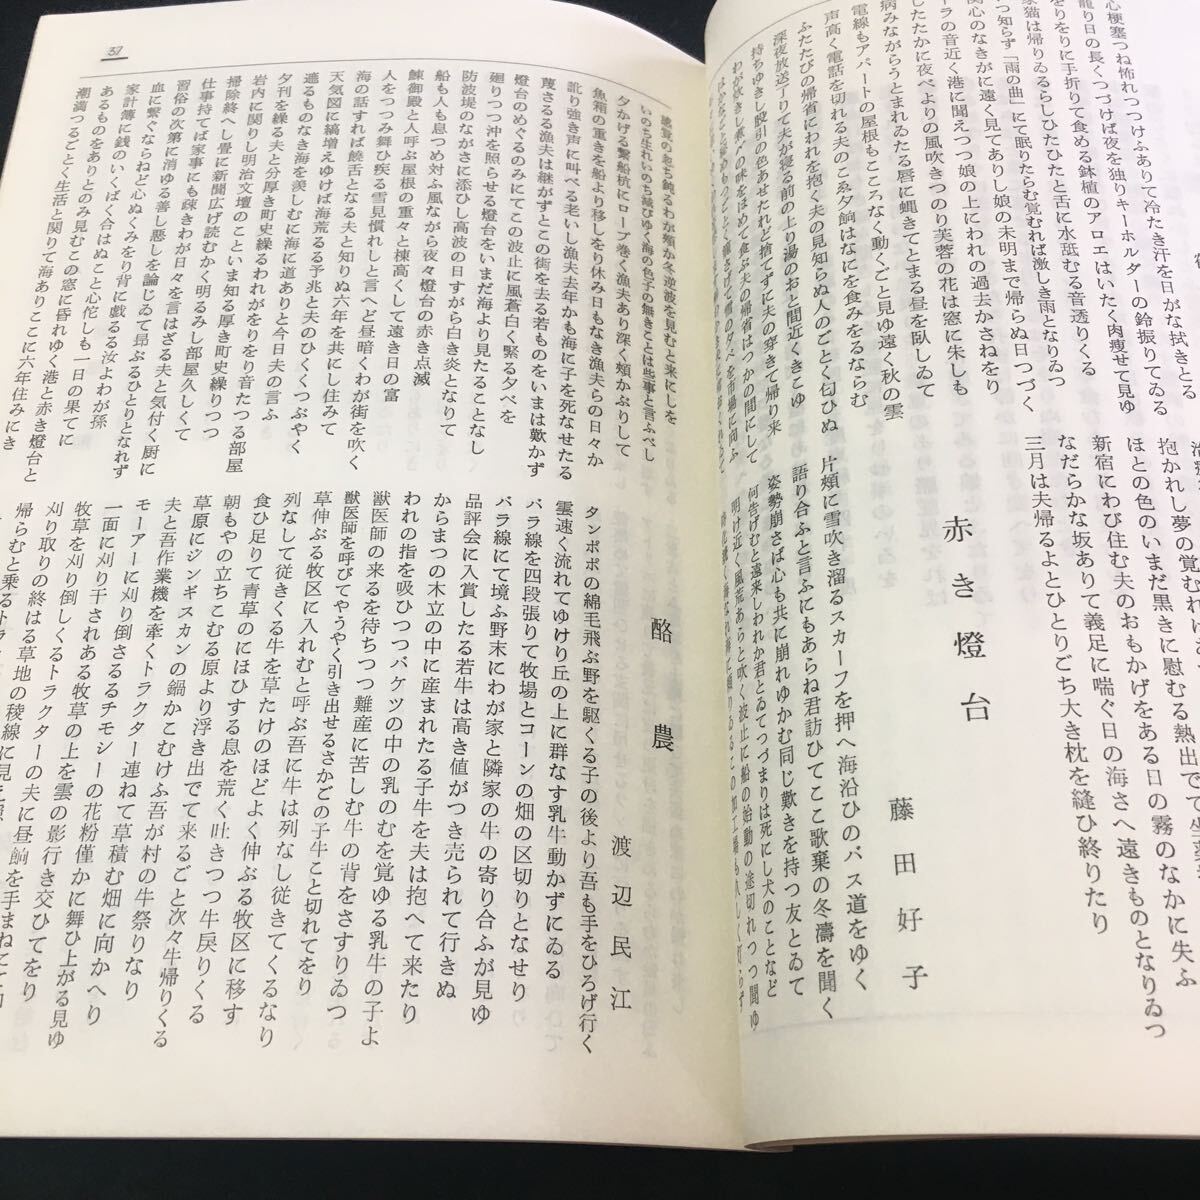 心梗塞つね怖れつつけふありて冷たき汗を日がな拭きとる
籠り日の長くつづけば夜を独りキーホルダーの鈴振りてゐる
をりをりに手折りて食める鉢植のアロエはいたく肉痩せて見ゆ
家猫は帰りゐるらしひたひたと舌に水舐むる音透りくる
つ知らず「雨の曲」にて眠りたらむ覚むれば激しき雨となりゐつ
関心のなきがに遠く見てありし娘の未明まで帰らぬ日つづく
トラの音近く港に聞えつつ娘の上にわれの過去かさねをり
したたかに夜べよりの風吹きつのり芙蓉の花は窓に朱しも
病みながらうとまれゐたる唇に蝿きてとまる昼を臥しゐて
電線もアパートの屋根もところなく動くごと見ゆ遠く秋の雲
声高く電話を切れる夫のこゑ夕餉はなにを食みをるならむ
ふたたびの帰省にわれを抱く夫の見知らぬ人のごとく匂ひぬ
深夜放送了りて夫が寝る前の上り湯のおと間近くきこゆ
持ちゆきし股引の色あせたれど捨てずに夫の穿きて帰り来
わが炊きし煮〆の味をほめて食ぶ夫の帰省はつかの間にして
抱かれし夢の覚むれ
ほとの色のいまだ黒きに慰むる熱出でて
新宿にわび住む夫のおもかげをある日の霧のなかに失ふ
なだらかな坂ありて義足に喘ぐ日の海さへ遠きものとなりゐつ
三月は夫帰るよとひとりごち大き枕を縫ひ終りたり
赤き燈台
藤田好子
片頬に雪吹き溜るスカーフを押へ海沿ひのバス道をゆく
語り合ふと言ふにもあらね君訪ひてここ歌棄の冬濤を聞く
姿勢崩さば心も共に崩れゆかむ同じ歎きを持つ友とゐて
何告げむと遠来しわれか君とゐてつづまりは死にし犬のことなど
明け近く風荒あらと吹く波止に船の始動の途切れつつ聞ゆ
37
感覚の怠ち鈍るわが頬か冬逆波を見むと来にしを
いのち生れいのち滅びゆく海の色子の無きことは些事と言ふべし
夕かげる繋船杭にロープ巻く漁夫あり深く頬かぶりして
魚箱の重きを船より移しをり休み日もなき漁夫らの日々か
訛り強き声に叫べる老いし漁夫去年かも海に子を死なせたる
蔑さるる漁夫は継がずとこの街を去る若ものをいまは歎かず
燈台のめぐるのみにてこの波止に風蒼白く緊る夕べを
廻りつつ沖を照らせる燈台をいまだ海より見たることなし
防波堤のながさに添ひし高波の日すがら白き炎となりて
船も人も息つめ対ふ風ながら夜々燈台の赤き点滅
鰊御殿と人呼ぶ屋根の重々と棟高くして遠き日の富
人をつつみ舞ひ疾る雪見慣れしと言へど昼暗くわが街を吹く
海の話すれば饒舌となる夫と知りぬ六年を共にし住みて
天気図に縞増えゆけば海荒るる予兆と夫のひくくつぶやく
遮るものなき海を羨しむに海に道ありと今日夫の言ふ
夕刊を繰る夫と分厚き町史繰るわれがをりをり音たつる部屋
岩内に関りし明治文壇のこといま知る厚き町史繰りつつ
掃除終へし畳に新聞広げ読むかく明るみし部屋久しくて
仕事持てば家事にも疎きわが日々を言はざる夫と気付く厨に
習俗の次第に消ゆる善し悪しを論じゐて昂ぶるひとりとなれず
血に繋ぐならねど心ぬくみをり背に戯る汝よわが孫
家計簿に銭のいくばく合はぬこと心佗しも一日の果てに
あるものをありとのみ見むこの窓に昏れゆく港と赤き燈台と
潮満つるごとく生活と関りて海ありここに六年住みにき
酪農
渡辺民江
タンポポの綿毛飛ぶ野を駆くる子の後より吾も手をひろげ行く
雲速く流れてゆけり丘の上に群なす乳牛動かずにゐる
バラ線を四段張りて牧場とコーンの畑の区切りとなせり
バラ線にて境ふ野末にわが家と隣家の牛の寄り合ふが見ゆ
品評会に入賞したる若牛は高き値がつき売られて行きぬ
からまつの木立の中に産まれたる子牛を夫は抱へて来たり
われの指を吸ひつつバケツの中の乳のむを覚ゆる乳牛の子よ
獣医師の来るを待ちつつ難産に苦しむ牛の背をさすりゐつ
獣医師を呼びてやうやく引き出せるさかごの子牛こと切れてをり
草伸ぶる牧区に入れむと呼ぶ吾に牛は列なし従きてくるなり
列なして従きくる牛を草たけのほどよく伸ぶる牧区に移す
食ひ足りて青草のにほひする息を荒く吐きつつ牛戻りくる
朝もやの立ちこむる原より浮き出でて来るごと次々牛帰りくる
草原にジンギスカンの鍋かこむけふ吾が村の牛祭りなり
夫と吾作業機を牽くトラクター連ねて草積む畑に向かへり
モーアーに刈り倒さるるチモシーの花粉僅かに舞ひ上がる見ゆ
一面に刈り干されある牧草の上を雲の影行き交ひてをり
牧草を刈り倒しくるトラクターの夫に昼餉を手まねにて
刈り取りの終はる草地の稜線に見え
帰らむと乗るトラ